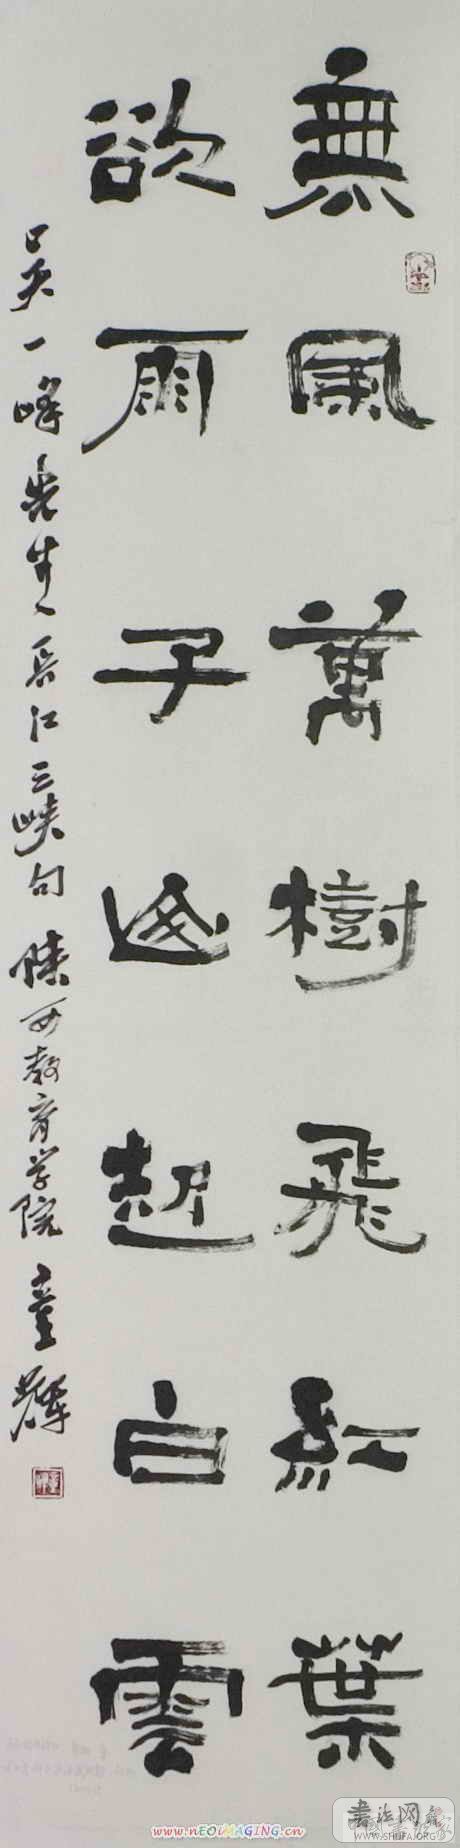 無風萬樹飛紅葉
欲雨千峰起白雲
吴一峰先生長江三峡句 陕西教育学院 童輝
www.nEOiMAGiNG.cn
书法网
WWW.SHUFA.ORG